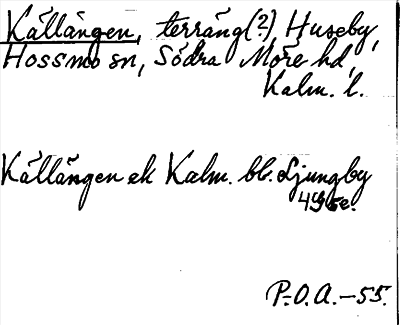 Källängen, terräng(?), Huseby,
Hossmo sn, Södra Möre hd,
Kalm. l.
Källängen ek Kalm. bl. Ljungby
4g 5e.
P.O.A.-55.